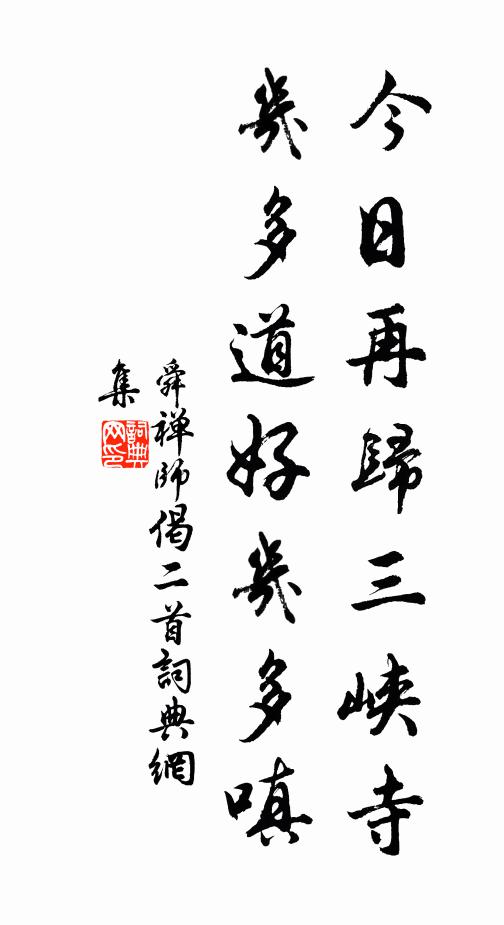 今日再歸三峽寺
幾多道好幾多嗔
舜禪師偈二首詞典網
集
詞典網印